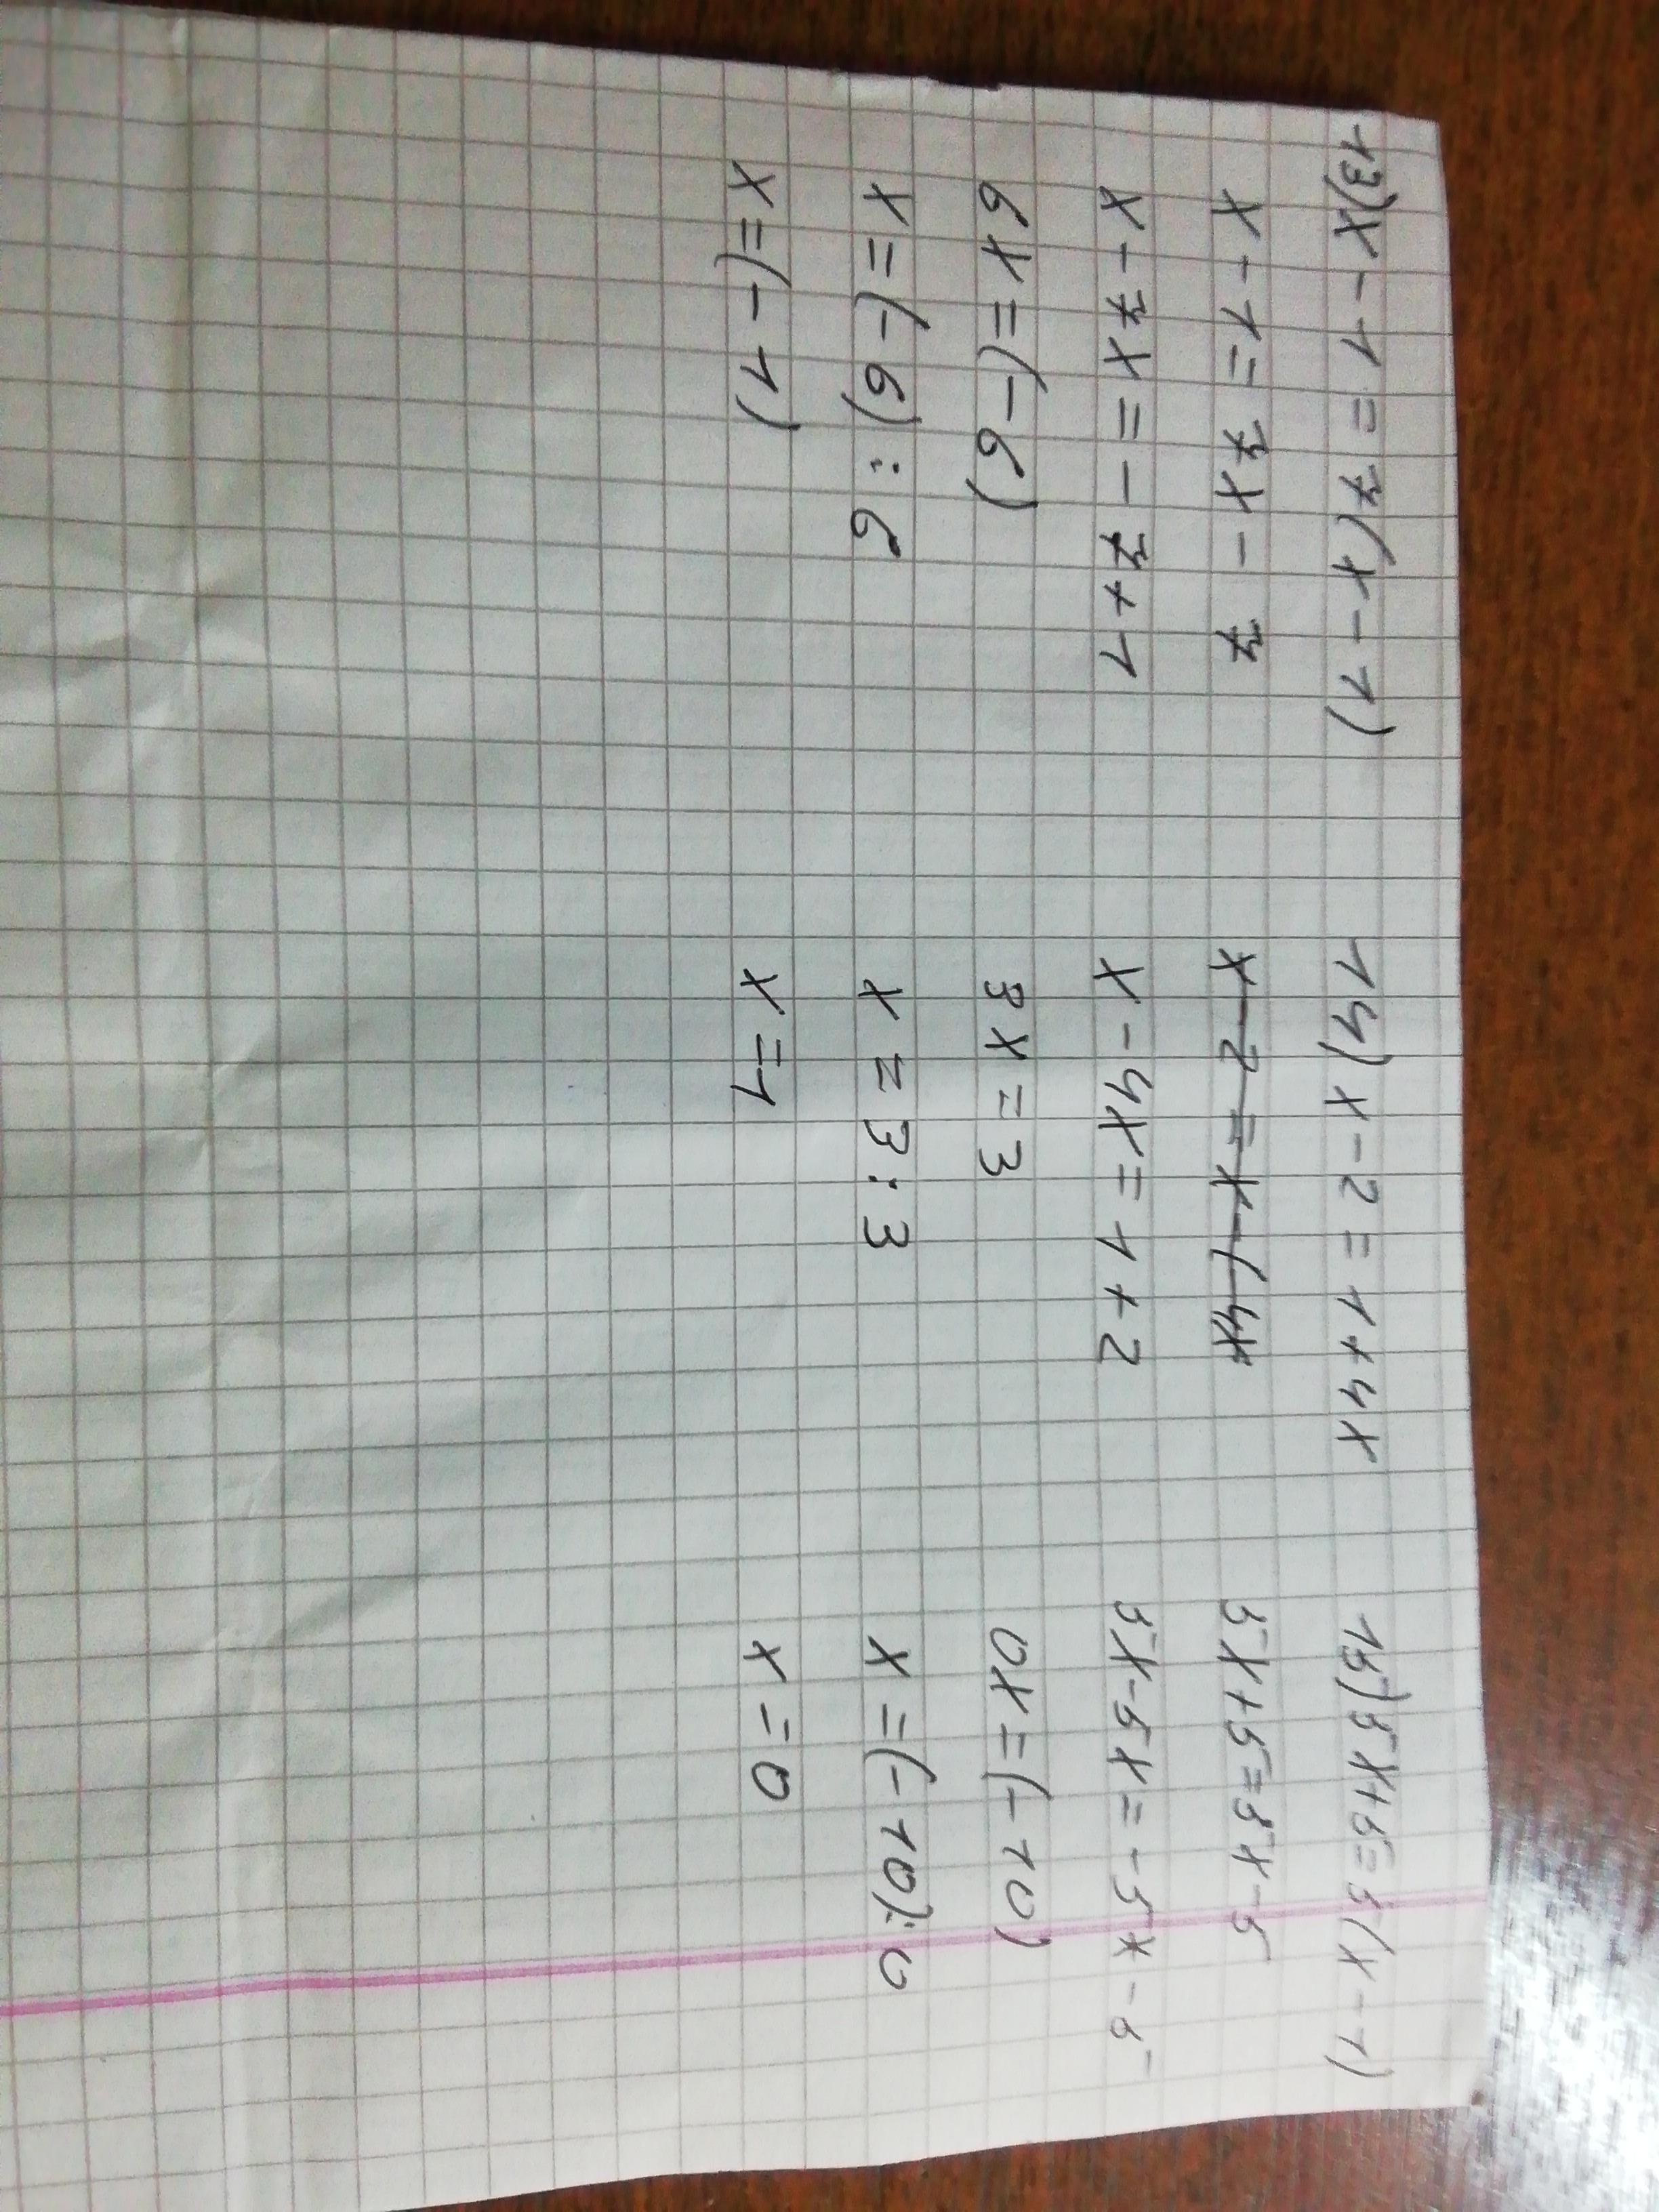 13) x - 1 = 7(x - 1)
x - 1 = 7x - 7
x - 7x = - 7 + 1
6x = (- 6)
x = (- 6) : 6
x = (- 1)
14) x - 2 = 1 + 4x
x - 2 = x - (4x
x - 4x = 1 + 2
3x = 3
x = 3 : 3
x = 1
15) 5x + 5 = 5(x - 1)
5x + 5 = 5x - 5
5x - 5x = - 5 - 5
0x = (- 10)
x = (- 10) : 0
x = 0